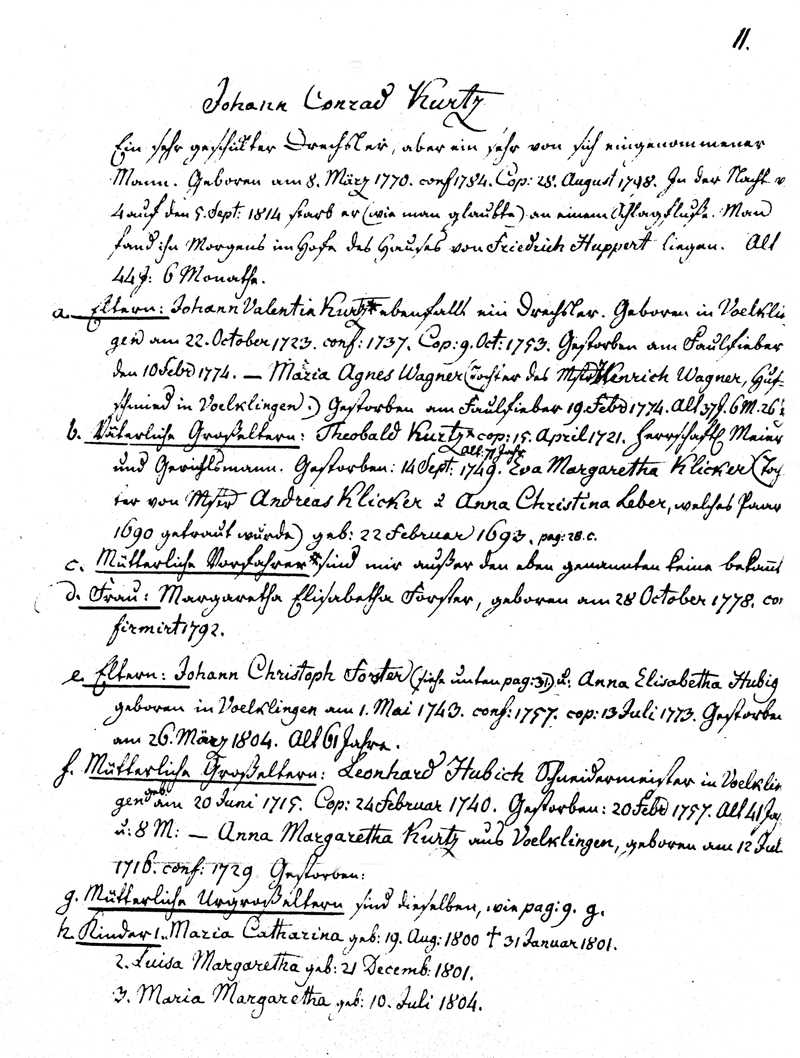 11.
Johann Conrad Kurtz
Ein sehr geschikter Drechsler, aber ein sehr von sich eingenommener
Mann. Geboren am 8. März 1770. conf 1784. Cop: 28. August 1798. In der Nacht v
4 auf den 5. Sept: 1814 starb er (wie man glaubte) an einem Schlagfluße. Man
fand ihn Morgens im Hofe des Hauses von Friedrich Huppert liegen. Alt
44 J: 6 Monathe.
a. Eltern: Johann Valentin Kurtz* ebenfalls ein Drechsler. Geboren in Voelklin
gen am 22. October 1723. conf: 1737. Cop: 9. Oct: 1753. Gestorben am Faulfieber
den 10 Febr 1774. — Maria Agnes Wagner (Tochter des Mstr Henrich Wagner, Huf-
schmied in Voelklingen.) Gestorben am Faulfieber 19. Febr 1774. Alt 37 J. 6 M. 26
b. Väterliche Großeltern: Theobald Kurtz* cop: 15. April 1721. Herrschaftl Meier
und Gerichtsmann. Gestorben: 14 Sept: 1749. Alt: 71 Jahr Eva Margaretha Klicker (Toch
ter von Mstr Andreas Klicker & Anna Christina Leber, welches Paar
1690 getraut wurde) geb: 22 Februar 1693. pag: 28. c.
c. Mütterliche Vorfahren* sind mir außer den eben genannten keine bekannt
d. Frau: Margaretha Elisabetha Forster, geboren am 28 October 1778. con
firmirt 1792.
e. Eltern: Johann Christoph Forster (siehe unten pag: 31) u: Anna Elisabetha Hubig
geboren in Voelklingen am 1. Mai 1743. conf: 1757. cop: 13 Juli 1773. Gestorben
am 26. März 1804. Alt 61 Jahre.
f. Mütterliche Großeltern: Leonhard Hubich Schneidermeister in Voelklin
gen geb: am 20 Juni 1715. Cop: 24 Februar 1740. Gestorben: 20 Febr 1757. Alt 41 Ja
u: 8 M: — Anna Margaretha Kurtz aus Voelklingen, geboren am 12 Jul
1716. conf: 1729 Gestorben:
g. Mütterliche Urgroßeltern sind dieselben, wie pag: 9. g.
h. Kinder 1. Maria Catharina geb: 19. Aug: 1800 † 31 Januar 1801.
2. Luisa Margaretha geb: 21 Decemb: 1801.
3. Maria Margaretha geb: 10. Juli 1804.